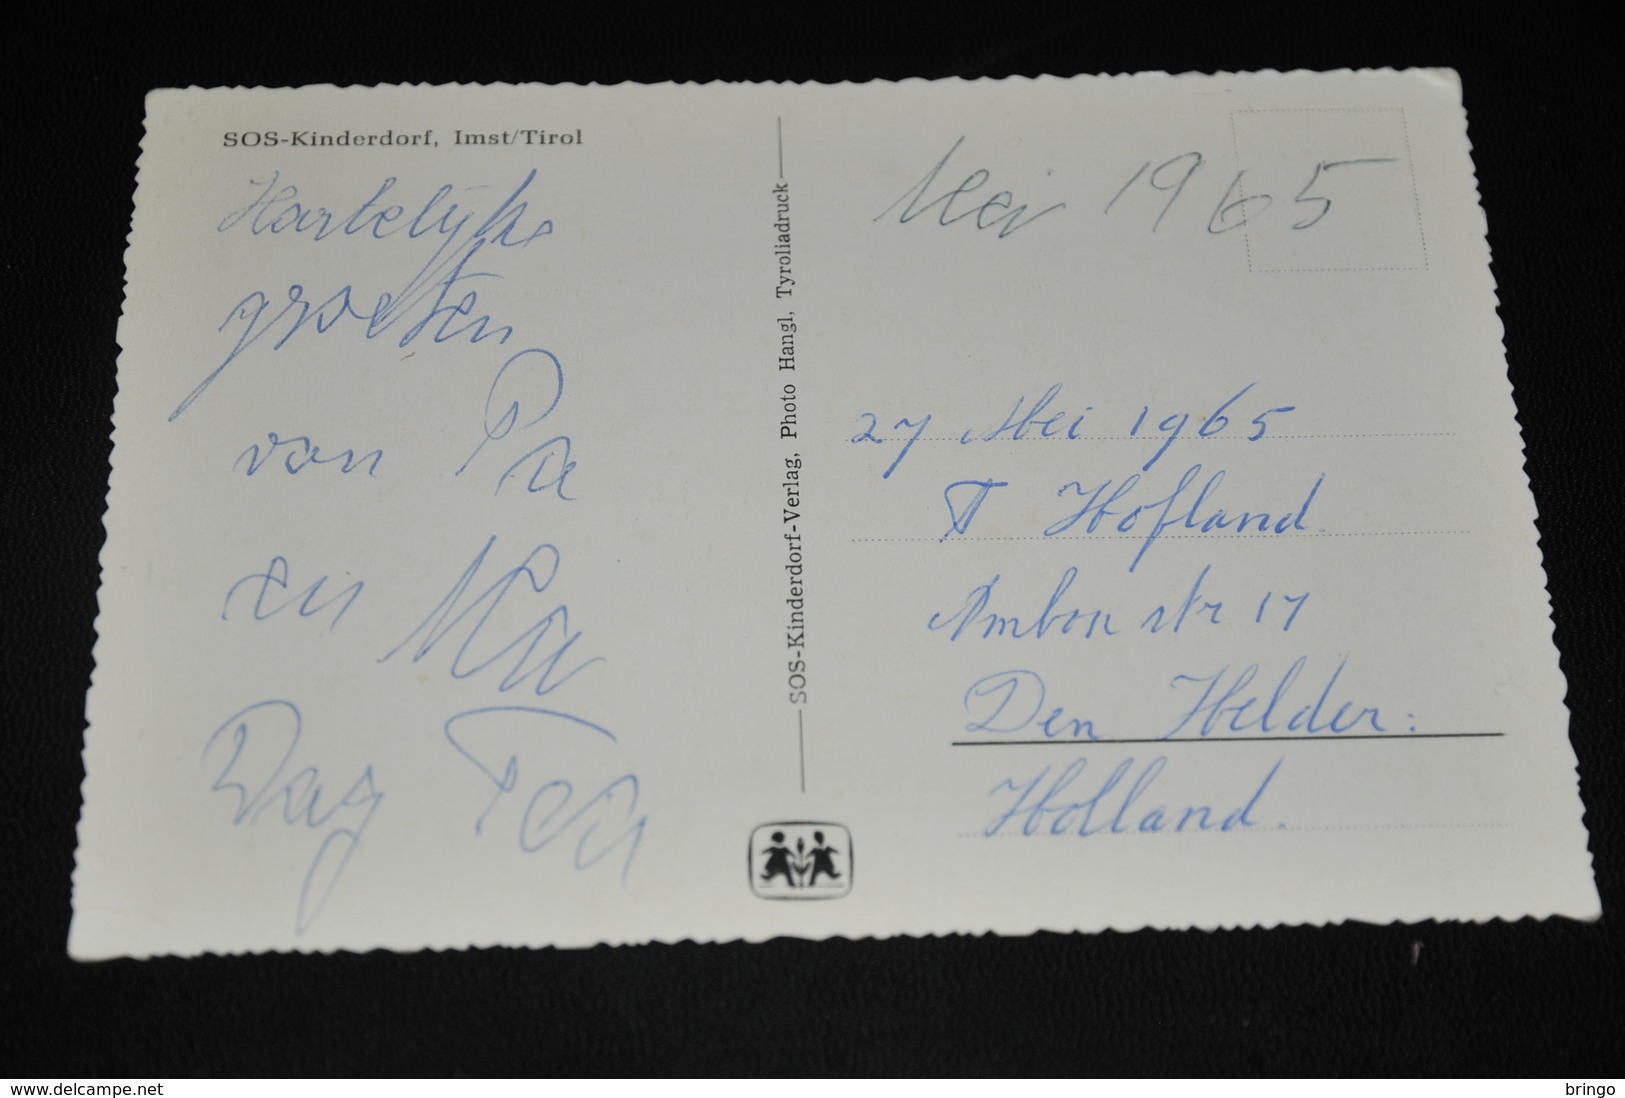 SOS-Kinderdorf, Imst/Tirol
Hartelijke
groeten
van Pa
en Ma
Dag Tea
SOS-Kinderdorf-Verlag, Photo Hangl, Tyroliadruck
Mei 1965
27 Mei 1965
T Hofland
Ambon str 17
Den Helder:
Holland.
https://www.delcampe.net
bringo